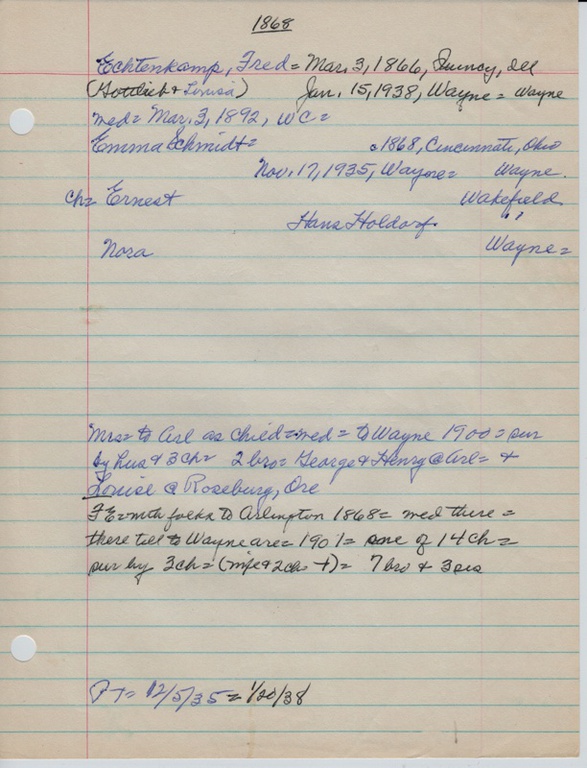 1868
Echtenkamp, Fred = Mar. 3, 1866, Quincy, Ill
(Gottlieb & Louisa) Jan. 15, 1938, Wayne = Wayne
med = Mar. 3, 1892, WC =
Emma Schmidt = c1868, Cincinnati, Ohio
Nov. 17, 1935, Wayne = Wayne.
ch = Ernest Wakefield
Hans Holdorf "
Nora Wayne =
Mrs = to Arl as child = med = to Wayne 1900 = sur
by hus & 3 ch = 2 bro = George & Henry @ Arl = &
Louise @ Roseburg, Ore
FE = with folks to Arlington 1868 = med there =
there till to Wayne are = 1901 = one of 14 ch =
sur by 3 ch = (wife & 2 ch +) = 7 bro & 3 sis
PT = 12/5/35 = 1/20/38